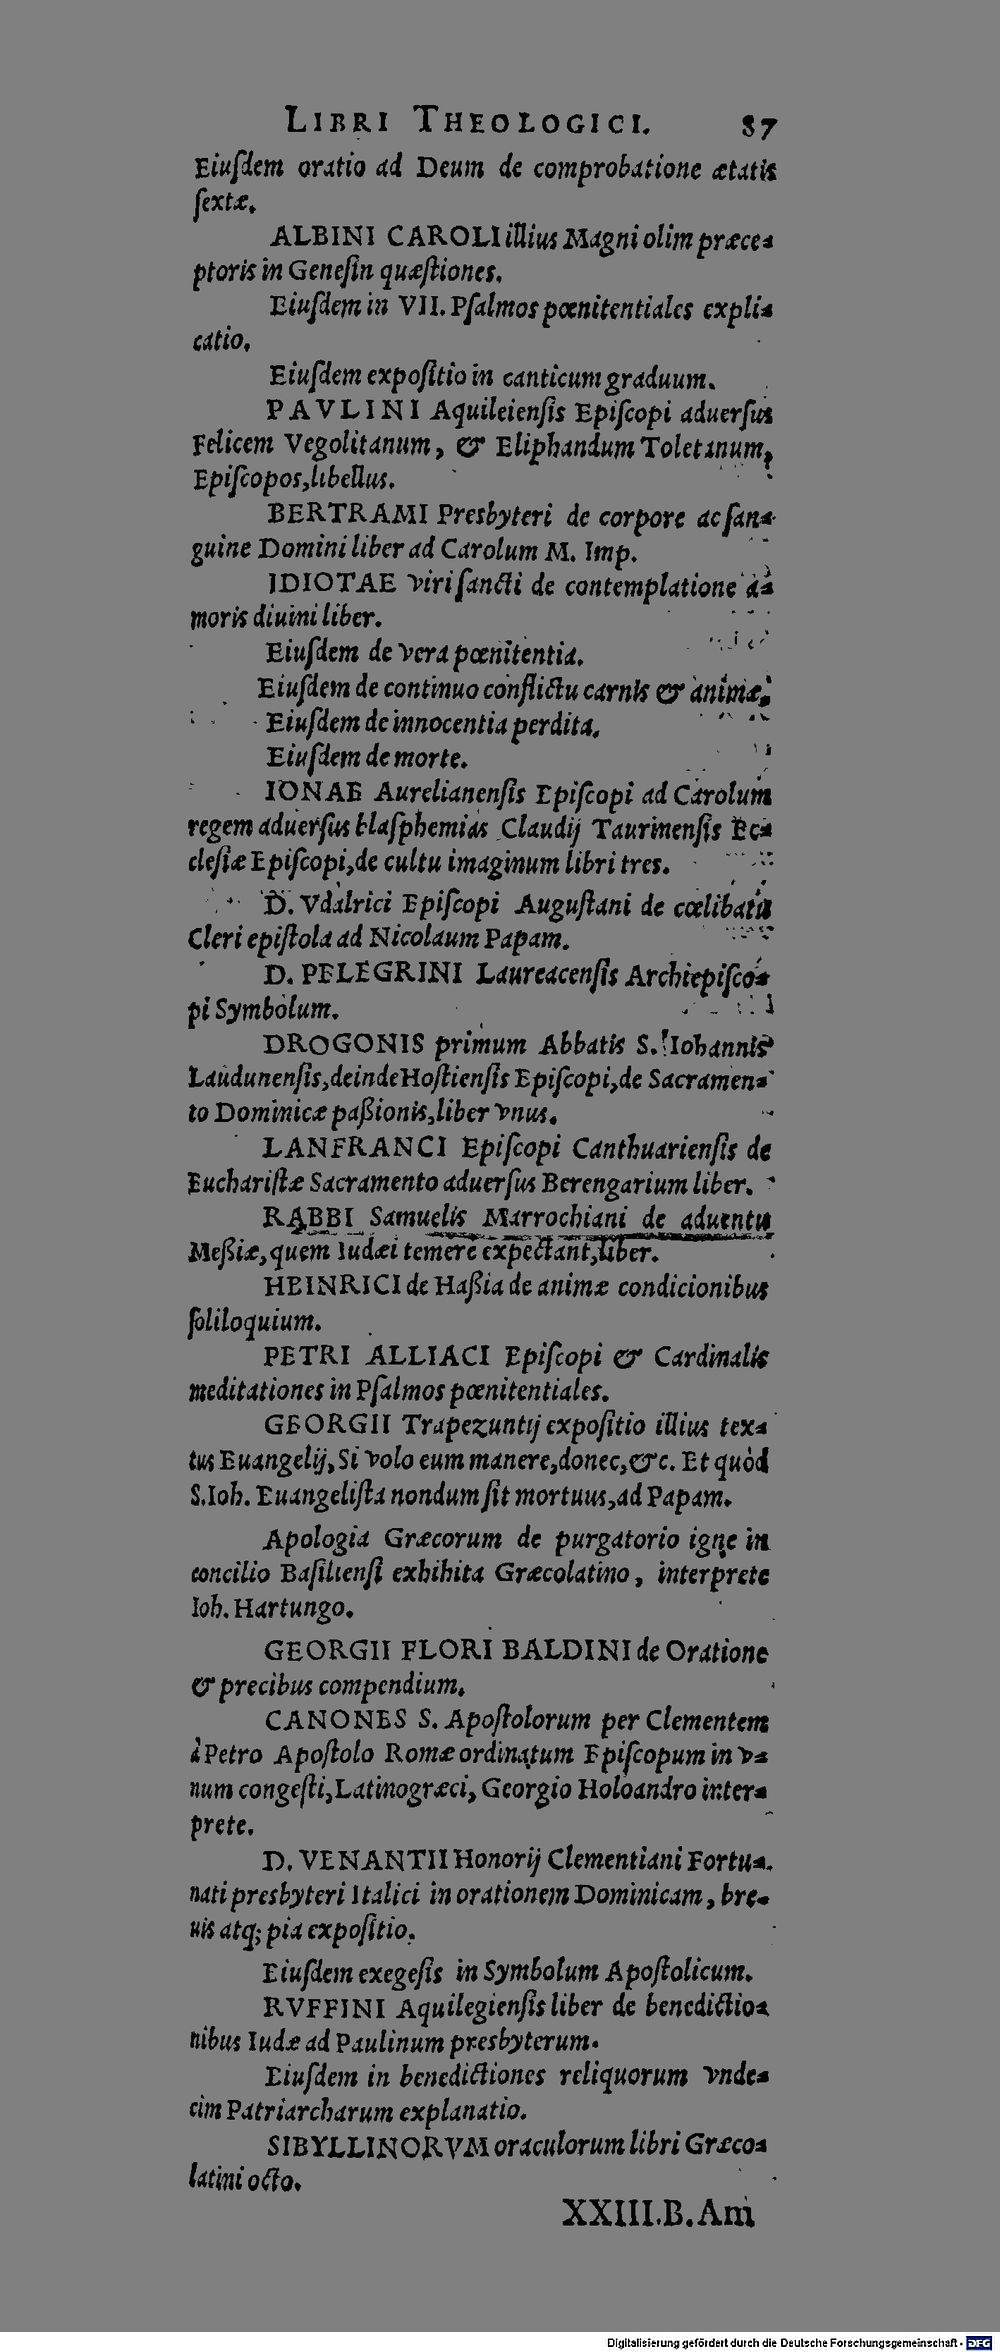 LIBRI THEOLOGICI. 87
Eiuſdem oratio ad Deum de comprobatione ætatis
ſextæ.
ALBINI CAROLI illius Magni olim præce⸗
ptoris in Geneſin quæſtiones.
Eiuſdem in VII. Pſalmos pœnitentiales expli⸗
catio.
Eiuſdem expoſitio in canticum graduum.
PAVLINI Aquileienſis Epiſcopi aduerſus
Felicem Vegolitanum, & Eliphandum Toletanum,
Epiſcopos, libellus.
BERTRAMI Presbyteri de corpore ac ſan⸗
guine Domini liber ad Carolum M. Imp.
IDIOTAE viri ſancti de contemplatione a⸗
moris diuini liber.
Eiuſdem de vera pœnitentia.
Eiuſdem de continuo conflictu carnis & animæ.
Eiuſdem de innocentia perdita.
Eiuſdem de morte.
IONAE Aurelianenſis Epiſcopi ad Carolum
regem aduerſus blaſphemias Claudij Taurinenſis Ec⸗
cleſiæ Epiſcopi, de cultu imaginum libri tres.
D. Vdalrici Epiſcopi Auguſtani de cœlibatu
Cleri epiſtola ad Nicolaum Papam.
D. PELEGRINI Laureacenſis Archiepiſco⸗
pi Symbolum.
DROGONIS primum Abbatis S. Iohannis
Laudunenſis, deinde Hoſtienſis Epiſcopi, de Sacramen⸗
to Dominicæ paßionis, liber vnus.
LANFRANCI Epiſcopi Canthuarienſis de
Euchariſtæ Sacramento aduerſus Berengarium liber.
RABBI Samuelis Marrochiani de aduentu
Meßiæ, quem Iudæi temere expectant, liber.
HEINRICI de Haßia de animæ condicionibus
ſoliloquium.
PETRI ALLIACI Epiſcopi & Cardinalis
meditationes in Pſalmos pœnitentiales.
GEORGII Trapezuntij expoſitio illius tex⸗
tus Euangelij, Si volo eum manere, donec, &c. Et quòd
S. Ioh. Euangeliſta nondum ſit mortuus, ad Papam.
Apologia Græcorum de purgatorio igne in
concilio Baſilienſi exhibita Græcolatino, interprete
Ioh. Hartungo.
GEORGII FLORI BALDINI de Oratione
& precibus compendium.
CANONES S. Apoſtolorum per Clementem
à Petro Apoſtolo Romæ ordinatum Epiſcopum in v⸗
num congeſti, Latinogræci, Georgio Holoandro inter⸗
prete.
D. VENANTII Honorij Clementiani Fortu⸗
nati presbyteri Italici in orationem Dominicam, bre⸗
uis atq; pia expoſitio.
Eiuſdem exegeſis in Symbolum Apoſtolicum.
RVFFINI Aquilegienſis liber de benedictio⸗
nibus Iudæ ad Paulinum presbyterum.
Eiuſdem in benedictiones reliquorum vnde⸗
cim Patriarcharum explanatio.
SIBYLLINORVM oraculorum libri Græco⸗
latini octo.
XXIII.B.Am
Digitalisierung gefördert durch die Deutsche Forschungsgemeinschaft - DFG